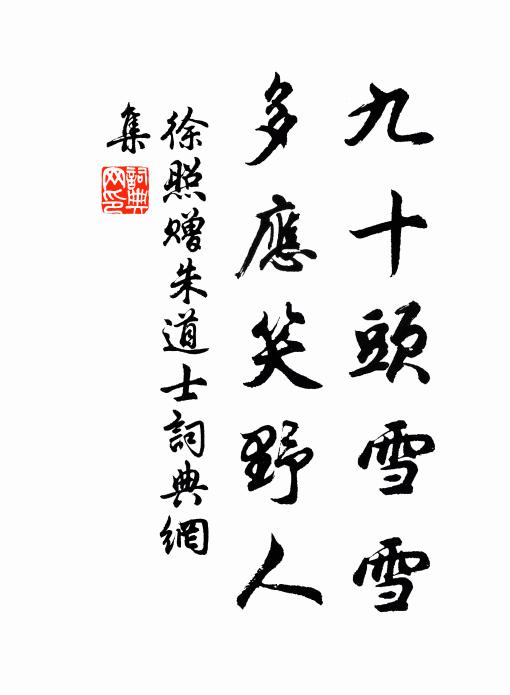 九十頭雪雪
多應笑野人
徐照贈朱道士詞典網
集
詞典
网印